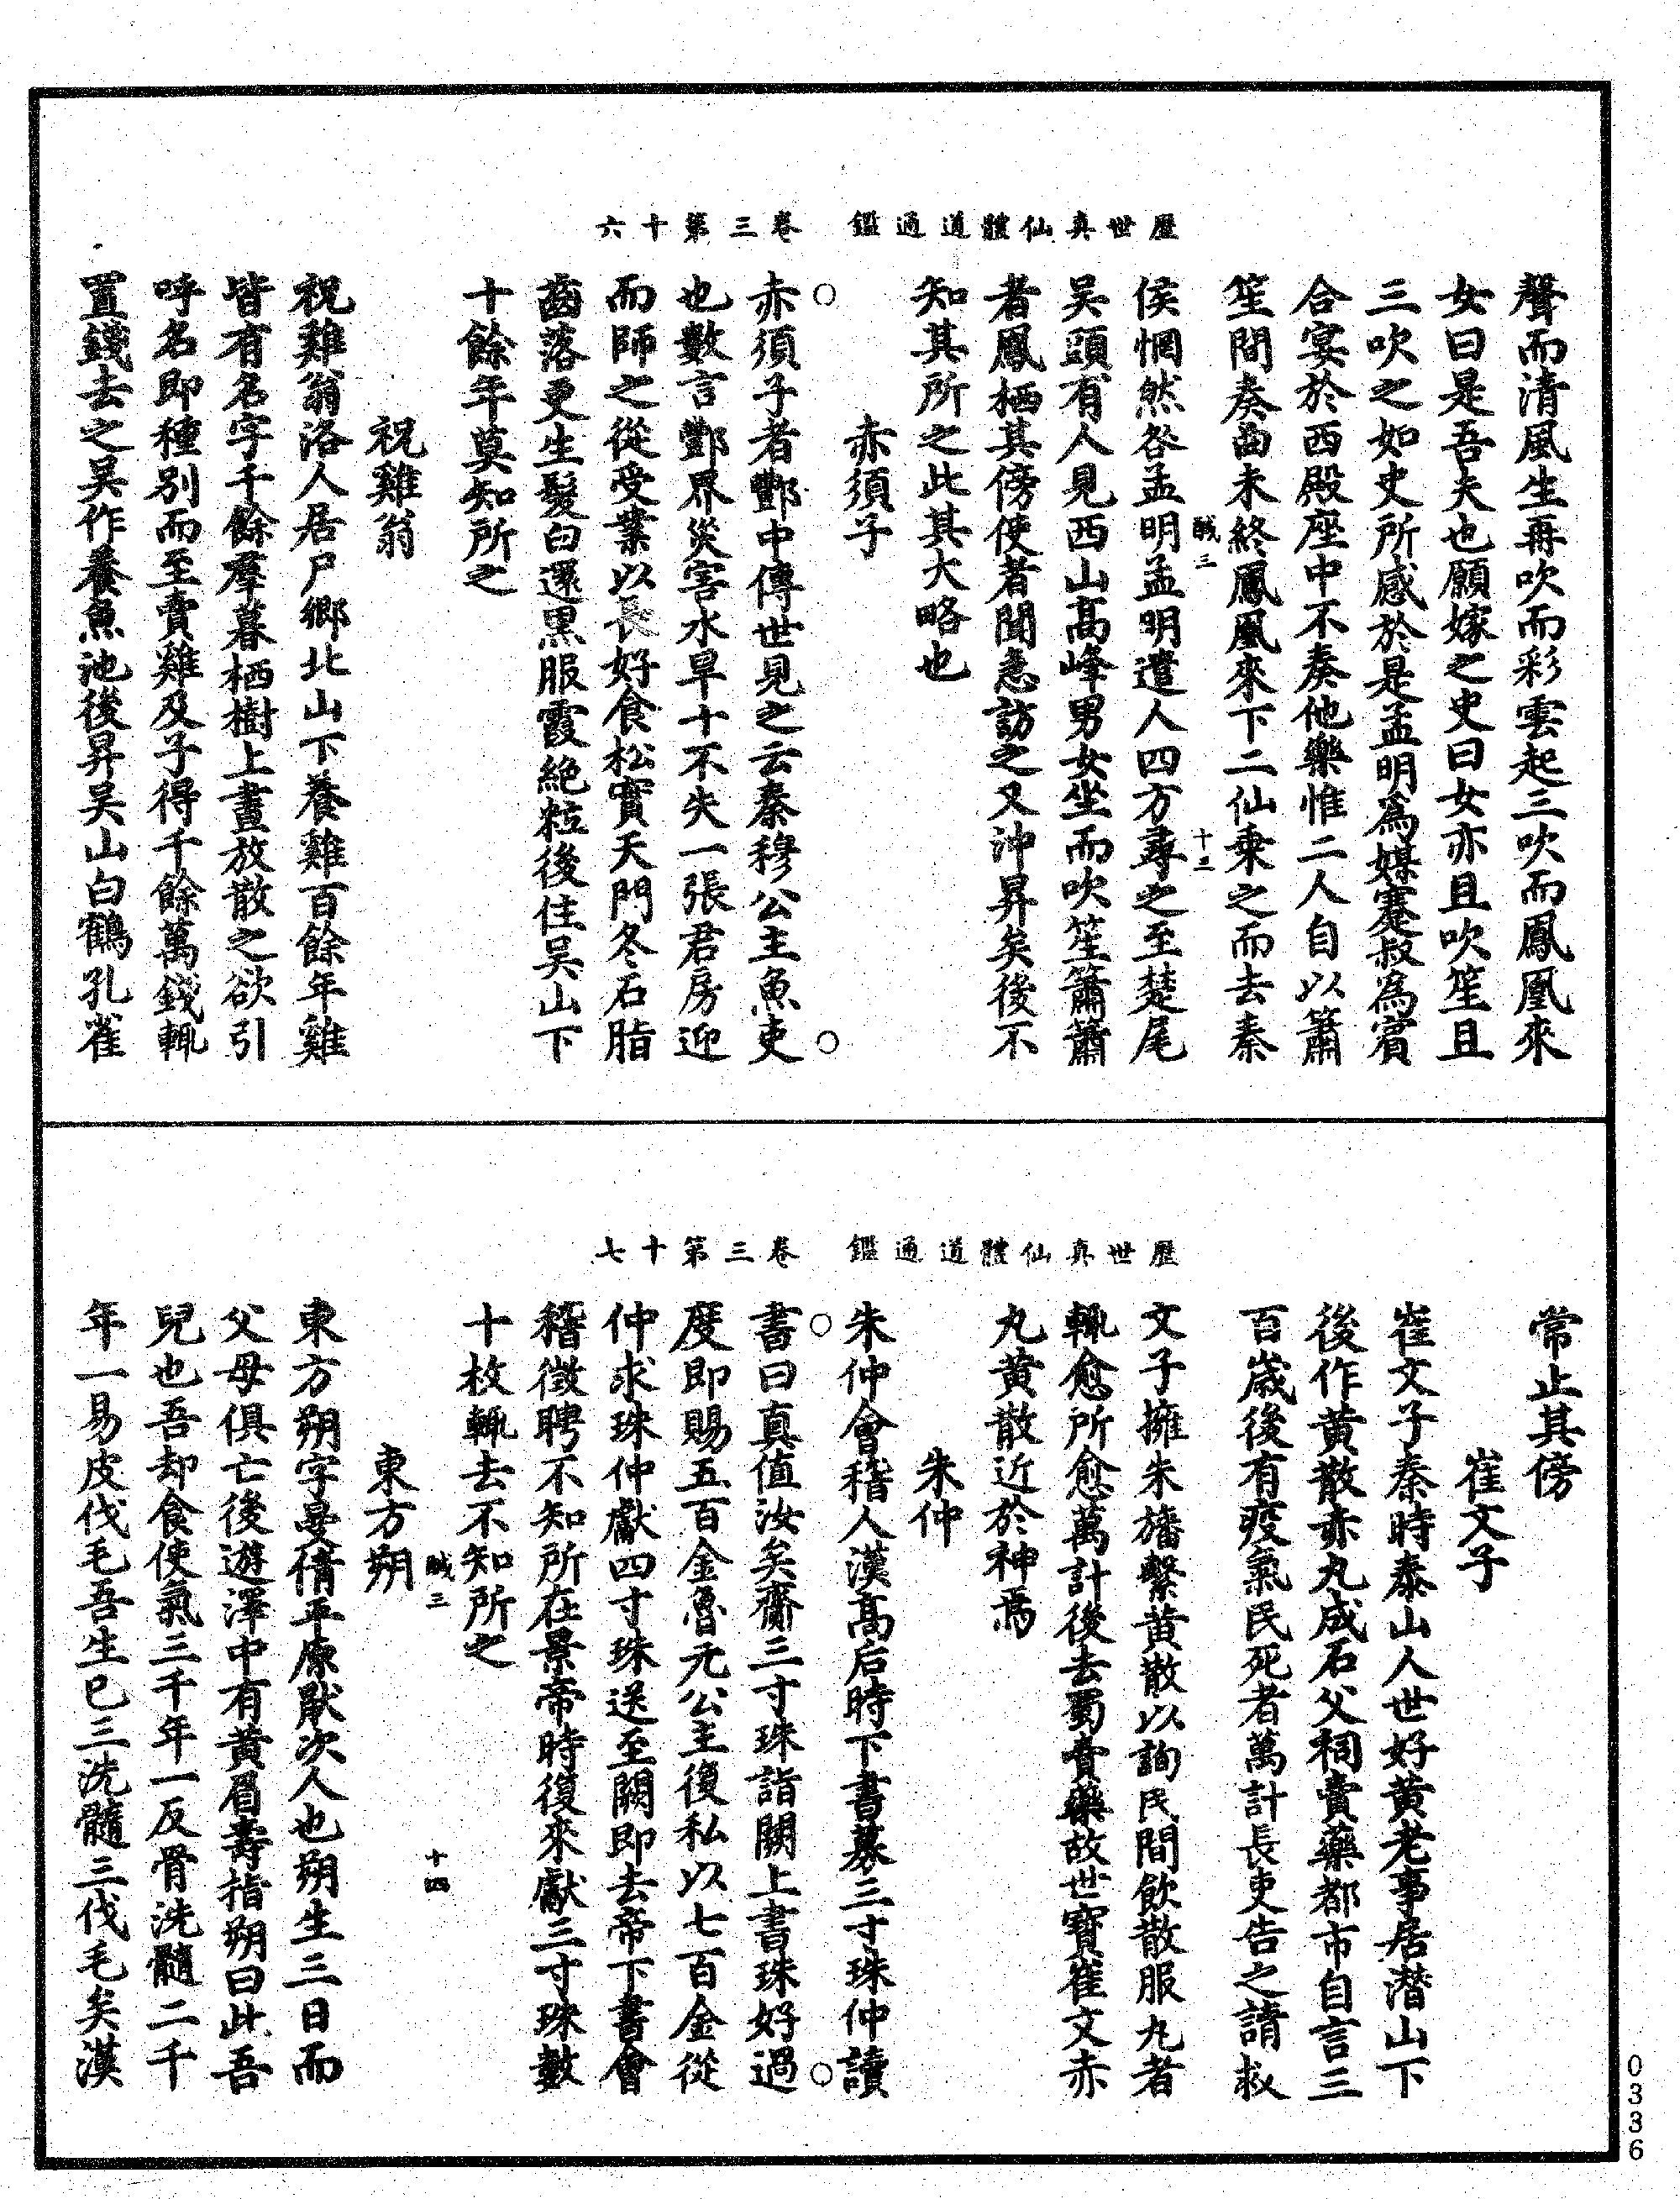 歷世真仙體道通鑑　卷三第十六
聲而清風生再吹而彩雲起三吹而鳳凰來
女曰是吾夫也願嫁之史曰女亦且吹笙且
三吹之如史所感於是孟明為媒蹇叔為賓
合宴於西殿座中不奏他樂惟二人自以簫
笙間奏曲未終鳳凰來下二仙乘之而去秦
醎三　十三
侯惘然咎孟明孟明遣人四方尋之至楚尾
吳頭有人見西山高峰男女坐而吹笙簫簫
者鳳栖其傍使者聞急訪之又沖昇矣後不
知其所之此其大略也
赤須子
赤須子者酆中傳世見之云秦穆公主魚吏
也數言酆界災害水旱十不失一張君房迎
而師之從受業以長好食松實天門冬石脂
齒落更生髮白還黑服霞絕粒後住吳山下
十餘年莫知所之
祝雞翁
祝雞翁洛人居尸鄉北山下養雞百餘年雞
皆有名字千餘羣暮栖樹上晝放散之欲引
呼名即種別而至賣雞及子得千餘萬錢輒
置錢去之吳作養魚池後昇吳山白鶴孔雀
歷世真仙體道通鑑　卷三第十七
常止其傍
崔文子
崔文子秦時泰山人世好黃老事居潛山下
後作黃散赤丸成石父祠賣藥都市自言三
百歲後有疫氣民死者萬計長吏告之請救
文子擁朱旛繫黃散以詢民間飲散服丸者
輒愈所愈萬計後去蜀賣藥故世寶崔文赤
丸黃散近於神焉
朱仲
朱仲會稽人漢高后時下書募三寸珠仲讀
書曰真值汝矣齎三寸珠詣闕上書珠好過
度即賜五百金魯元公主復私以七百金從
仲求珠仲獻四寸珠送至闕即去帝下書會
稽徵聘不知所在景帝時復來獻三寸珠數
十枚輒去不知所之
醎三　十四
東方朔
東方朔字曼倩平原厭次人也朔生三日而
父母俱亡後遊澤中有黃眉壽指朔曰此吾
兒也吾却食使氣三千年一反骨洗髓二千
年一易皮伐毛吾生已三洗髓三伐毛矣漢
0336